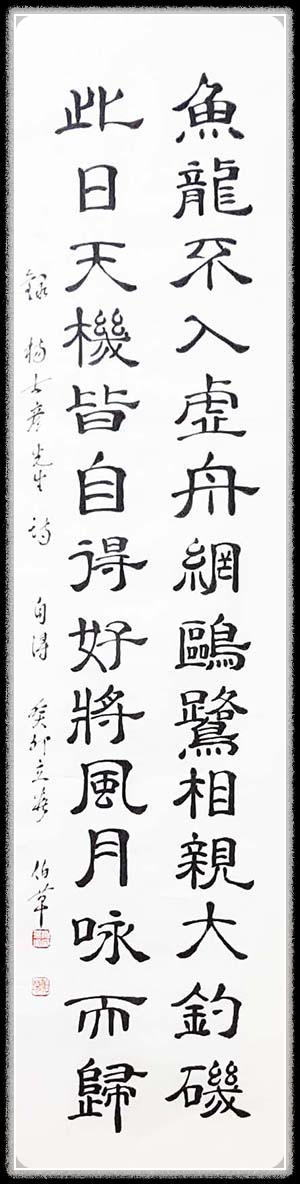 魚龍不入虛舟網鷗鷺相親大釣磯
此日天機皆自得好將風月咏而歸
錄 楊士彥先生詩 自得 癸卯立春 伯